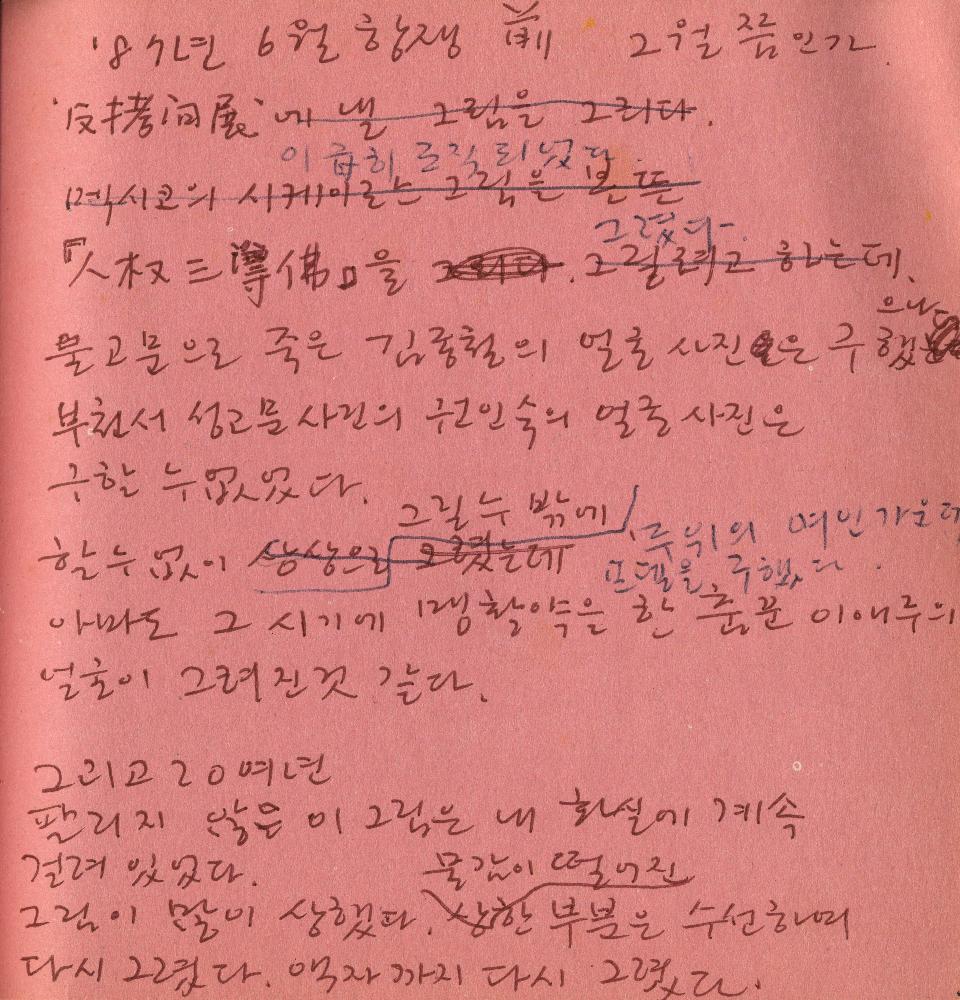 '87년 6월 항쟁 前 2월 쯤인가
'反拷問展'에 낼 그림을 그리다.
이 급히 조직되었다
멕시코의 시케이로스 그림을 본 뜬
그렸다.
『人权三尊佛』을 그리다. 그릴려고 하는데,
으나
물고문으로 죽은 김종철의 얼굴 사진은 구했
부천서 성고문사건의 권인숙의 얼굴 사진은
구할 수 없었다.
그릴 수 밖에
주위의 여인 가운데
할 수 없이 상상으로 그렸는데
모델을 구했다.
아마도 그 시기에 맹활약을 한 춤꾼 이애주의
얼굴이 그려진것 같다.
그리고 20여년
팔리지 않은 이 그림은 내 화실에 계속
걸려 있었다.
물감이 떨어진
그림이 많이 상했다. 상한 부분은 수선하며
다시 그렸다. 액자까지 다시 그렸다.